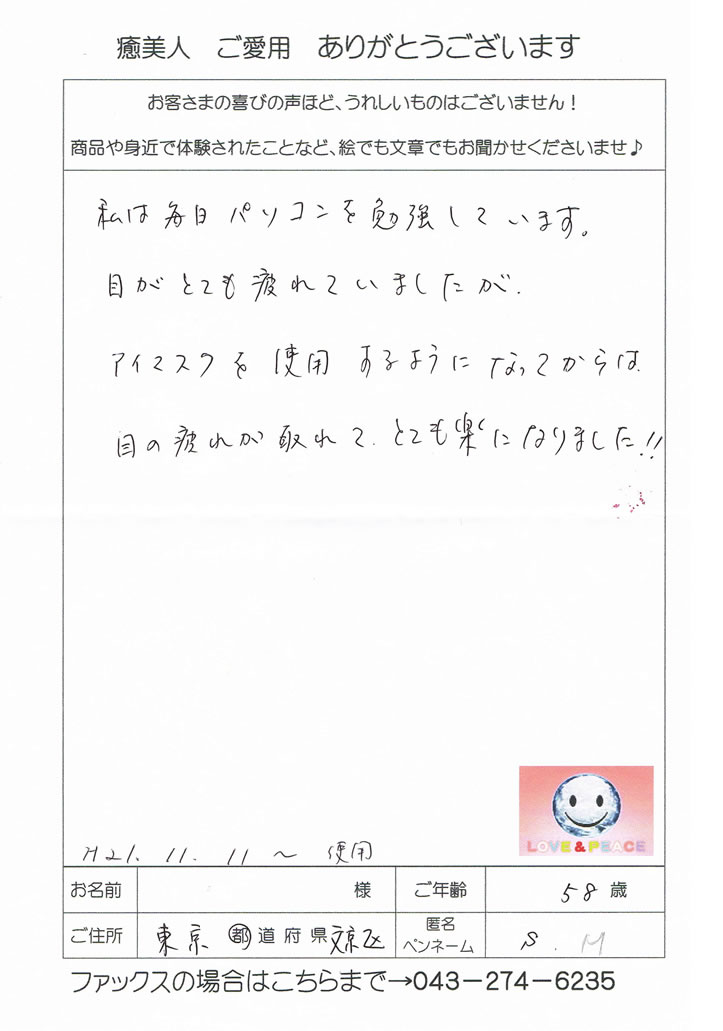 癒美人 ご愛用 ありがとうございます
お客さまの喜びの声ほど、うれしいものはございません！
商品や身近で体験されたことなど、絵でも文章でもお聞かせくださいませ♪
私は毎日パソコンを勉強しています。
目がとても疲れていましたが、
アイマスクを使用するようになってからは
目の疲れが取れて、とても楽になりました!!
LOVE & PEACE
H21. 11. 11 〜 使用
お名前 様 ご年齢 58 歳
ご住所 東京 都道府県 文京区 匿名ペンネーム S. M
ファックスの場合はこちらまで→043－274－6235